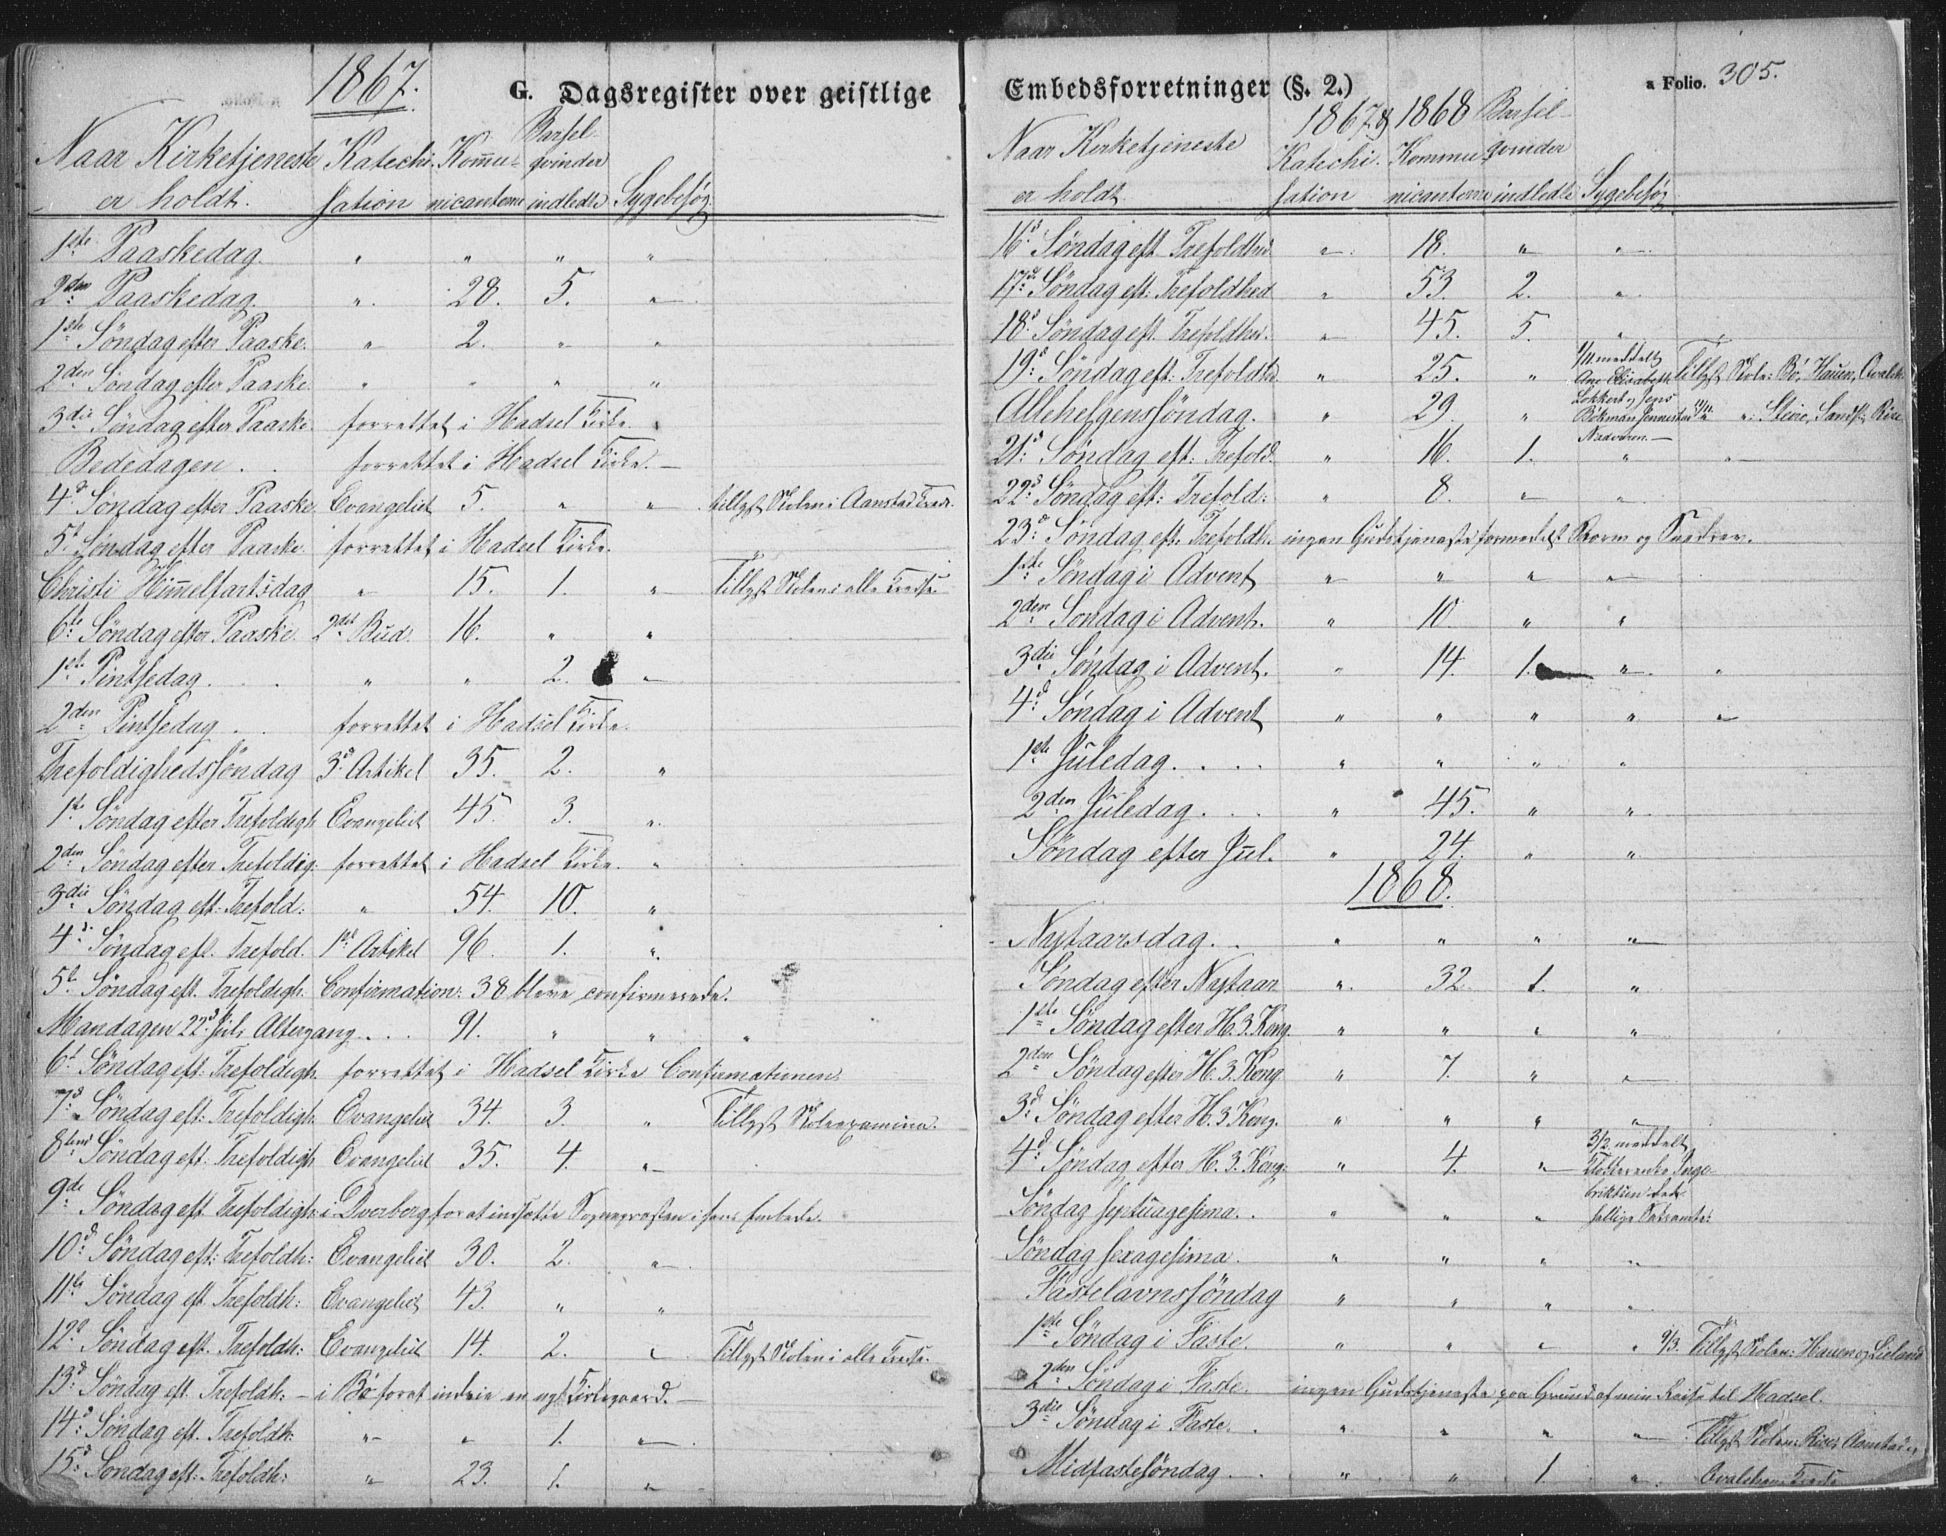 1867.
G. Dagsregister over geistlige
Naar Kirketjeneste er holdt. | Katechisation | Kommunicanterne | Barselqvinder indledte | Sygebesøg
1ste Paaskedag. " " " "
2den Paaskedag. " 28. 5. "
1ste Søndag efter Paaske. " 2. " "
2den Søndag efter Paaske. " " " "
3die Søndag efter Paaske. forrettet i Hadsel Kirke.
Bededagen . . forrettet i Hadsel Kirke. —
4d. Søndag efter Paaske. Evangeliet 5. " " tillyst Skolen i Aanstad Kreds.
5t. Søndag efter Paaske. forrettet i Hadsel Kirke.
Christi Himmelfartsdag " 15. 1. " Tillyst Skolen i alle Kredse.
6te Søndag efter Paaske. 2det Bud. 16. " "
1ste Pintsedag. " " 2. "
2den Pintsedag . . forrettet i Hadsel Kirke.
Trefoldighedssøndag 3d. Artikel 35. 2. "
1ste Søndag efter Trefoldigh. Evangeliet 45. 3. "
2den Søndag efter Trefoldig. forrettet i Hadsel Kirke. "
3die Søndag eft. Trefold: " 54. 10. "
4d. Søndag eft. Trefold. 1ste Artikel 96. 1. "
5te Søndag eft. Trefoldigh. Confirmation: 38 bleve confirmerede.
Mandagen 22d. Juli Altergang . . . 91. " " "
6t. Søndag eft: Trefoldigh. forrettet i Hadsel Kirke Confirmationen.
7d. Søndag eft: Trefoldigh. Evangeliet 34. 3. " Tillyst Skoleexamina.
8tend Søndag eft. Trefoldigh. Evangeliet 35. 4. "
9de Søndag eft Trefoldigh: i Dverberg for at indsætte Sognepræsten i hans Embede.
10d: Søndag eft: Trefoldh: Evangeliet 30. 2. "
11te Søndag eft Trefoldh: Evangeliet 43. " "
12d Søndag eft. Trefoldh: Evangeliet 14. 2. " Tillyst Skolen i alle Kredse.
13d Søndag eft. Trefoldh: — i Bø for at indvie en nyt Kirkegaard. —
14d: Søndag eft. Trefoldh: " " 1. "
15d: Søndag eft: Trefoldh: " 23. 1. "
Embedsforretninger (§. 2.)
a Folio. 305.
1867 og 1868
Naar Kirketjeneste er holdt. | Katechisation | Kommunicanterne | Barselqvinder indledte | Sygebesøg
16d. Søndag eft. Trefoldhed. " 18. " "
17d. Søndag eft: Trefoldhed " 53. 2. "
18d. Søndag eft. Trefoldhed. " 45. 5. "
19d. Søndag eft: Trefoldh. " 25. " 1/11 meddelt Ane Elisabeth Tillyst Skole: Bø, Hauen,
Allehelgenssøndag. " 29. " Lokkert og Jens " ": Steiro, Sandst: Rise
21d. Søndag eft: Trefold. " 16. 1. Nadveren. —
22d: Søndag eft: Trefold: " 8. " "
23d: Søndag eft: Trefoldh. ingen Gudstjeneste formedelst Storm og Snedrev.
1ste Søndag i Advent " " " "
2den Søndag i Advent. " 10 " "
3die Søndag i Advent. " 14. 1. " "
4d: Søndag i Advent " " " " "
1ste Juledag. . . . " " " "
2den Juledag. . . " 45. " "
Søndag efter Jul. " 24. " "
1868.
Nytaarsdag. . " " " "
Søndag efter Nytaar " 32. 1. "
1ste Søndag efter H. 3. Kong. " " " "
2den Søndag efter H. 3. Kong. " 7. " "
3d: Søndag efter H. 3. Kong. " " " "
4d: Søndag efter H. 3. Kong: " 4. " 3/2 meddelt
Søndag septuagesima. . " " " hellige Sacramente:
Søndag sexagesima. " " " "
Fastelavnssøndag " " " "
1ste Søndag i Faste. " " " " 9/3. Tillyst Skolen: Hauen og
2den Søndag i Faste. ingen Gudstjeneste paa Grund af min Reise til Hadsel.
3die Søndag i Faste. . " " " " Tillyst Skolen: Rise,
Midfastesøndag. . " " 1. "